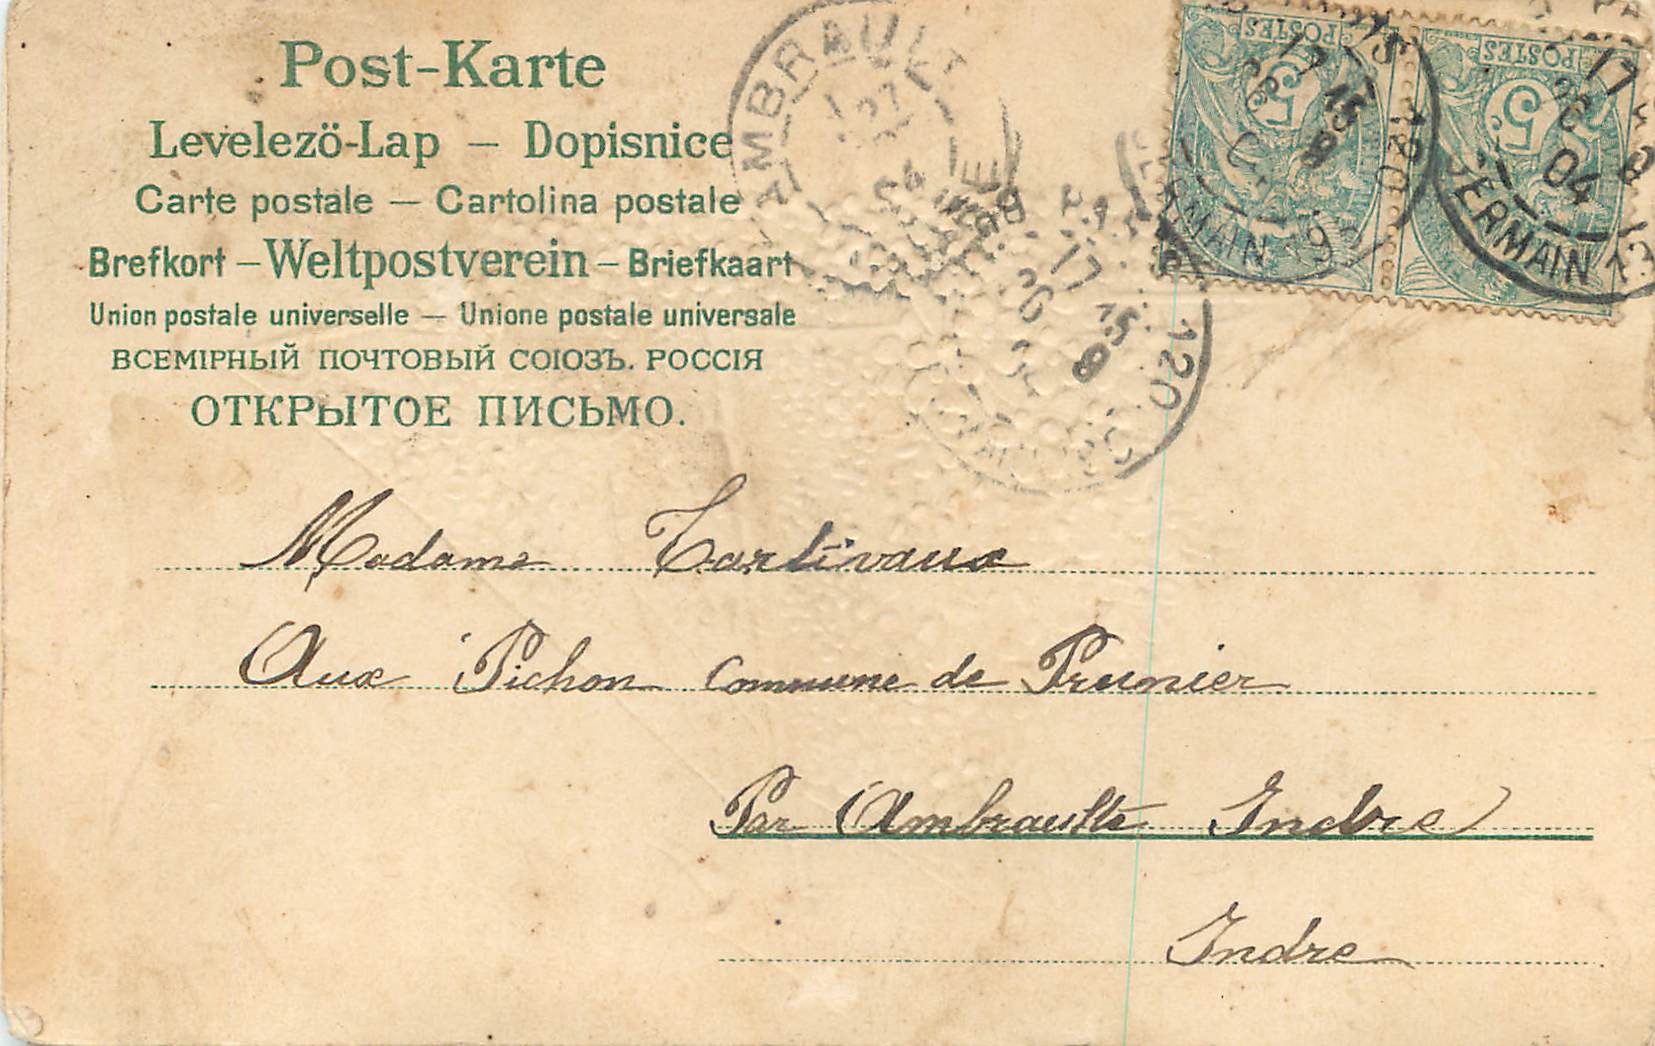 Post-Karte
Levelezö-Lap – Dopisnice
Carte postale – Cartolina postale
Brefkort – Weltpostverein – Briefkaart
Union postale universelle – Unione postale universale
ВСЕМІРНЫЙ ПОЧТОВЫЙ СОЮЗЪ. РОССІЯ
ОТКРЫТОЕ ПИСЬМО.
AMBRAULT
27
04
POSTES
5c
POSTES
5c
17 15
8
GERMAIN
17
04
GERMAIN
17 15
8
120
Madame Tartivaux
Aux Pichon Commune de Prunier
Par Ambraulte Indre
Indre